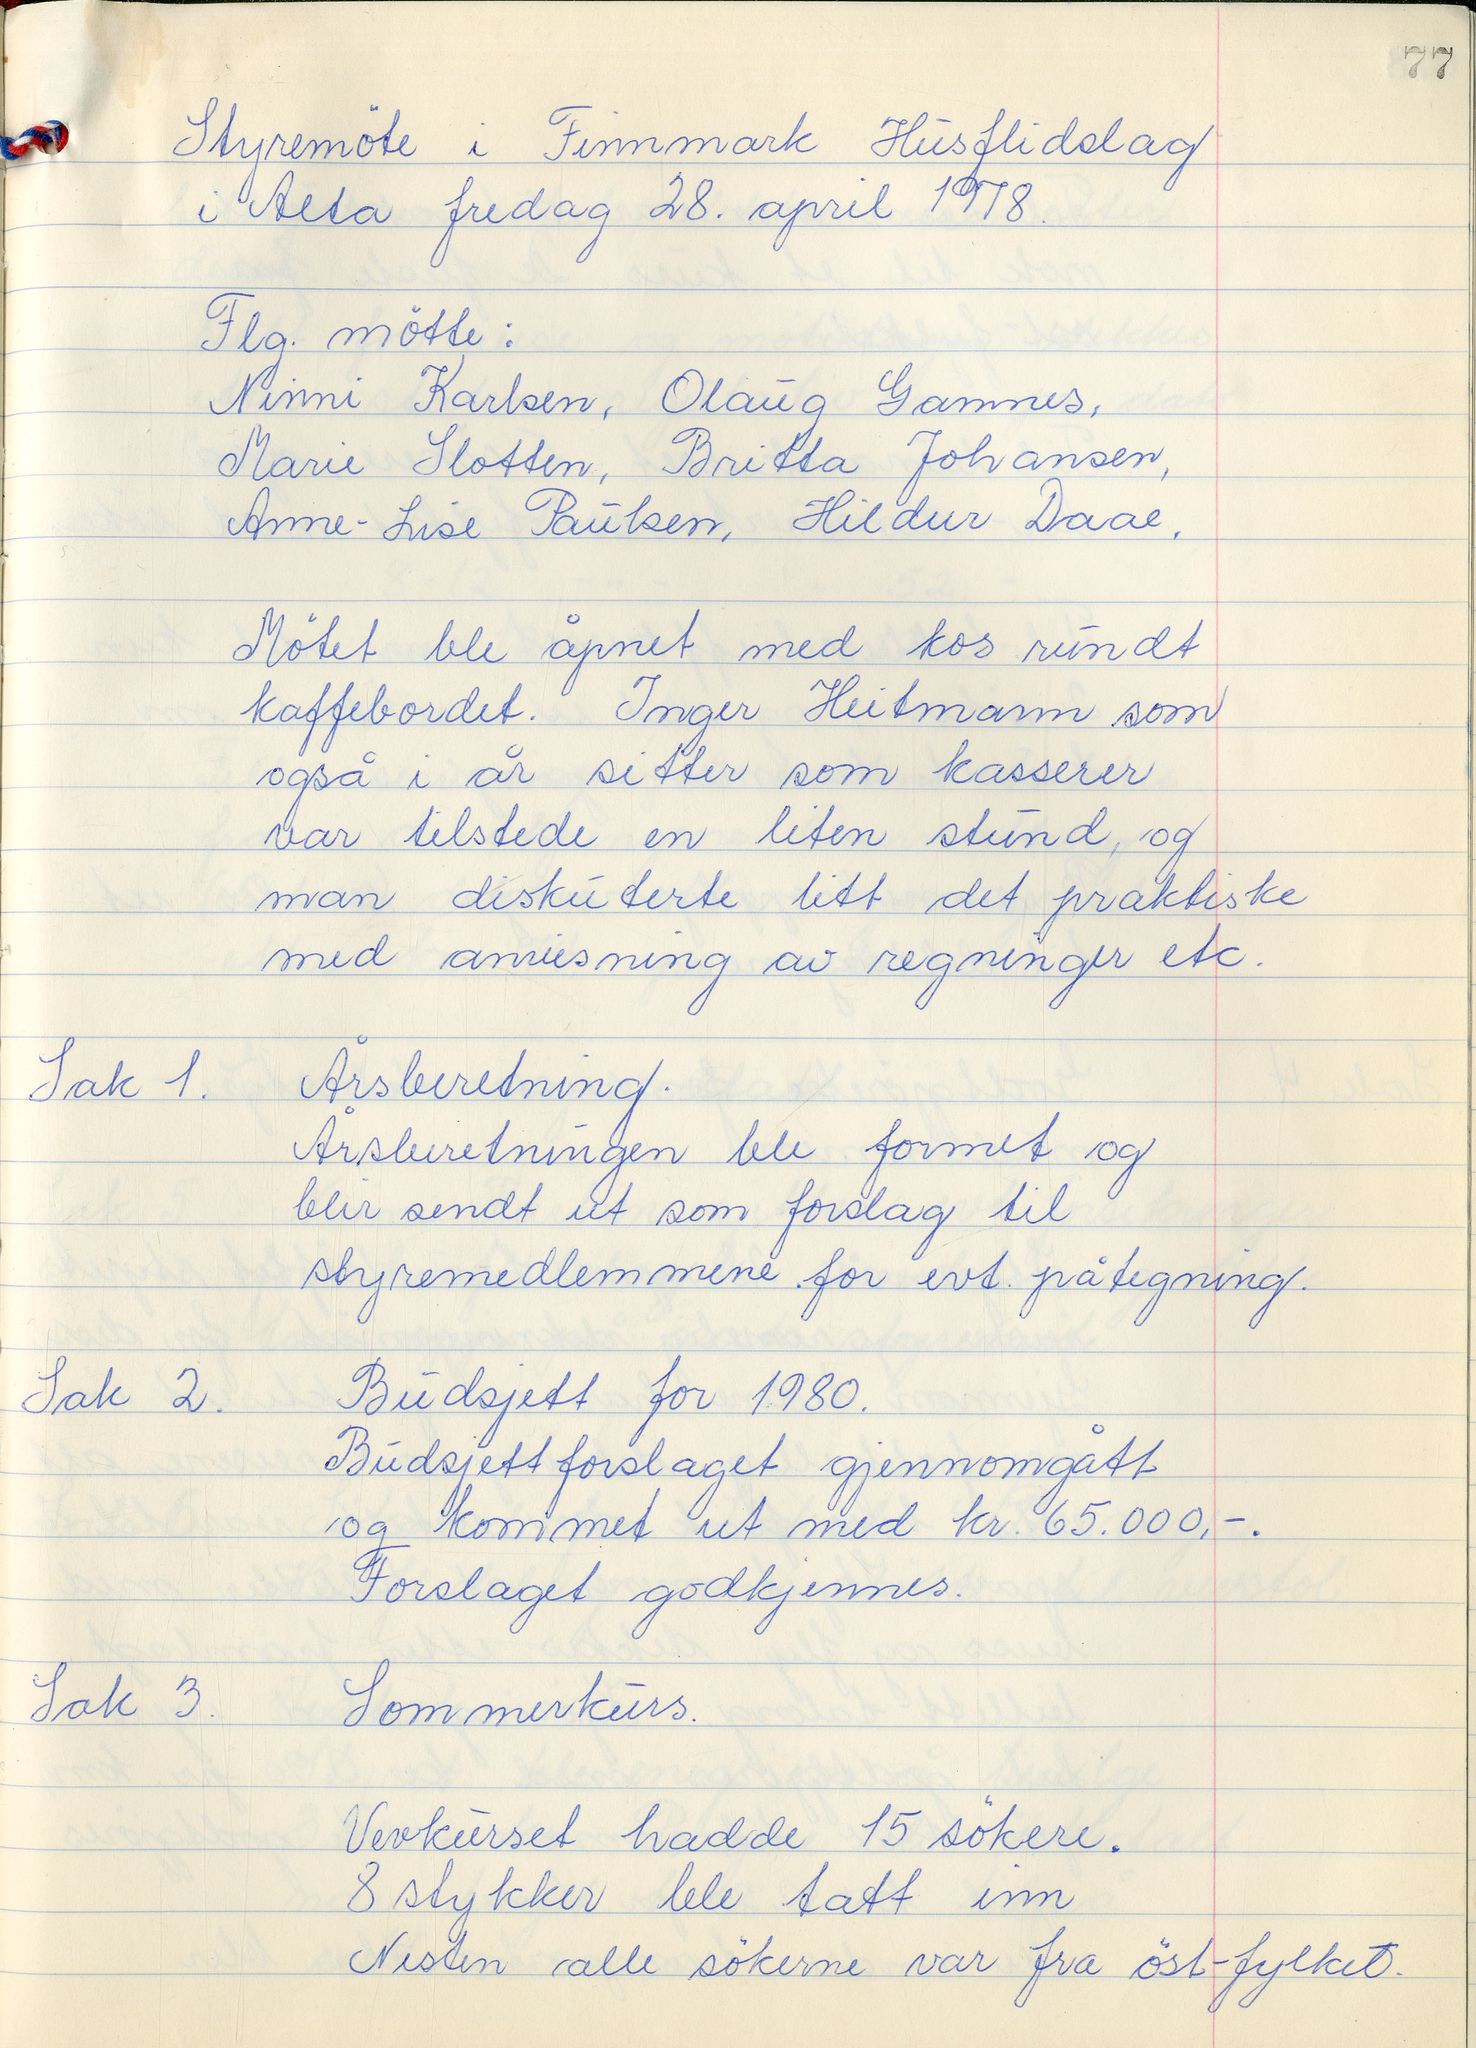 77
Styremöte i Finnmark Husflidslag
i Alta fredag 28. april 1978.
Flg. mötte:
Ninni Karlsen, Olaug Gamnes,
Marie Slotten, Britta Johansen,
Anne-Lise Paulsen, Hildur Daae.
Mötet ble åpnet med kos rundt
kaffebordet. Inger Heitmann som
også i år sitter som kasserer
var tilstede en liten stund, og
man diskuterte litt det praktiske
med anvisning av regninger etc.
Sak 1. Årsberetning.
Årsberetningen ble formet og
blir sendt ut som forslag til
styremedlemmene for evt. påtegning.
Sak 2. Budsjett for 1980.
Budsjettforslaget gjennomgått
og kommet ut med kr. 65.000,-.
Forslaget godkjennes.
Sak 3. Sommerkurs.
Vevkurset hadde 15 sökere.
8 stykker ble tatt inn
Nesten alle sökerne var fra öst-fylket.